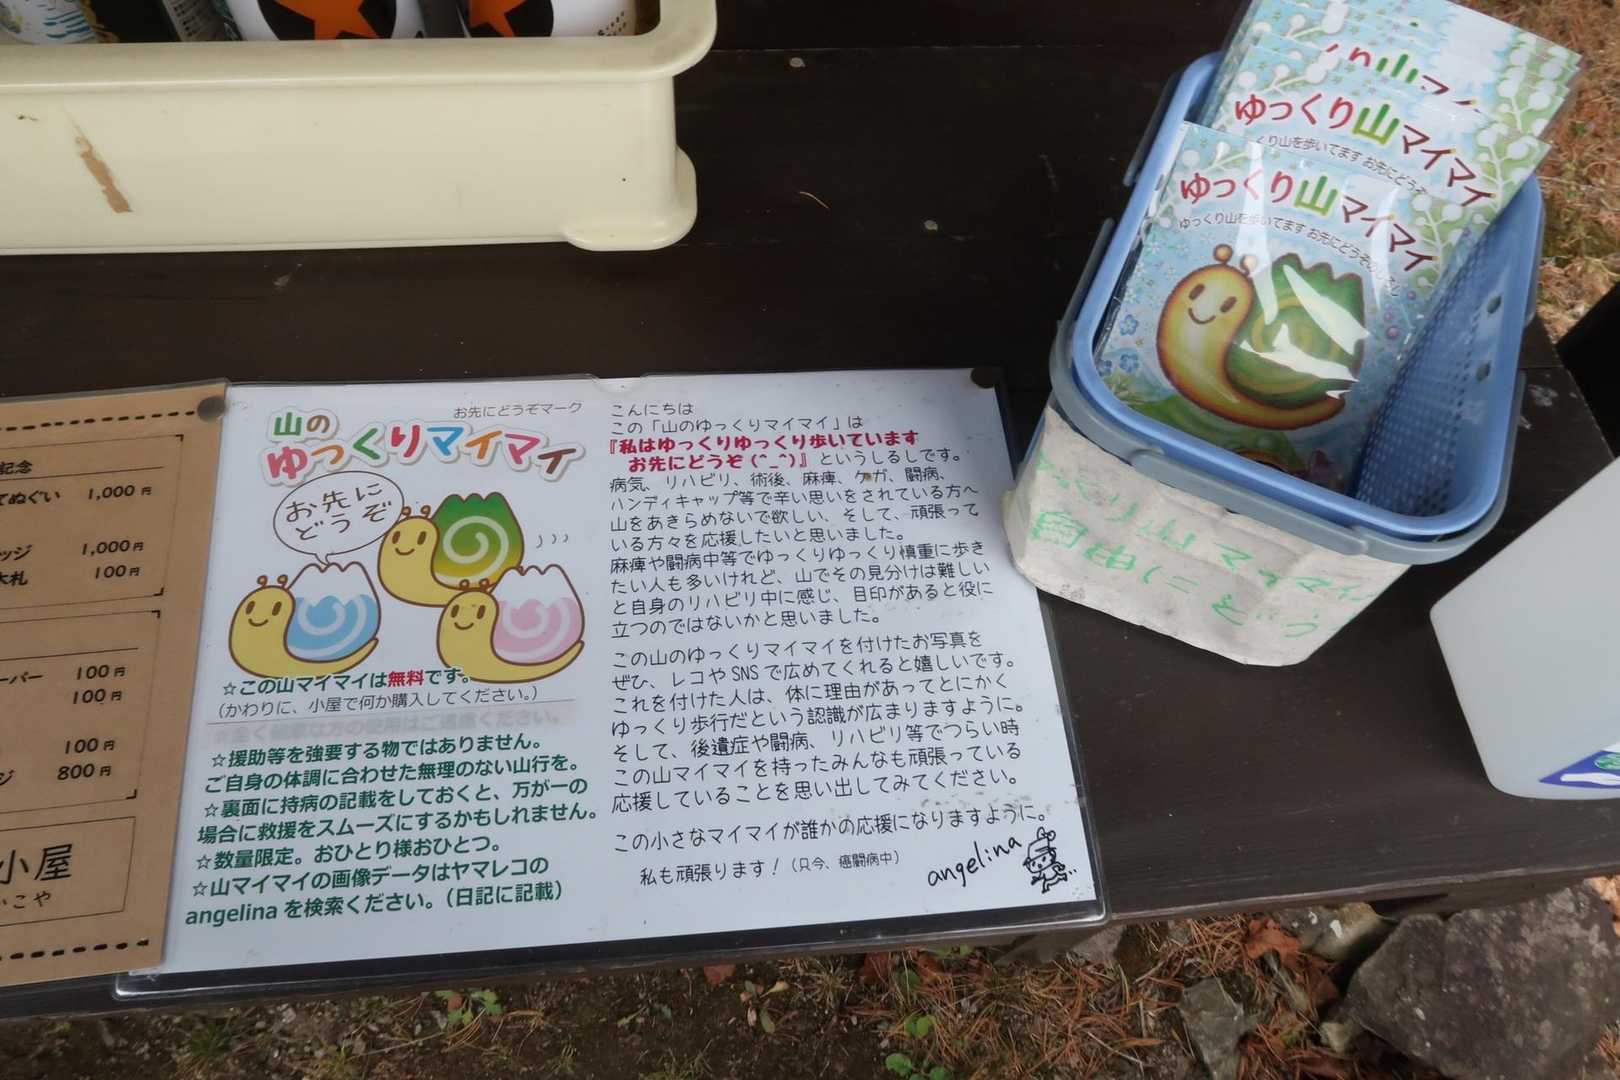 記念
てぬぐい 1,000円
ッジ 1,000円
木札 100円
ーパー 100円
100円
100円
ジ 800円
小屋
こや
お先にどうぞマーク
山の
ゆっくりマイマイ
お先に
どうぞ
☆この山マイマイは無料です。
(かわりに、小屋で何か購入してください。)
☆援助等を強要する物ではありません。
ご自身の体調に合わせた無理のない山行を。
☆裏面に持病の記載をしておくと、万が一の
場合に救援をスムーズにするかもしれません。
☆数量限定。おひとり様おひとつ。
☆山マイマイの画像データはヤマレコの
angelinaを検索ください。(日記に記載)
こんにちは
この「山のゆっくりマイマイ」は
『私はゆっくりゆっくり歩いています
お先にどうぞ(^_^)』というしるしです。
病気、リハビリ、術後、麻痺、ケガ、闘病、
ハンディキャップ等で辛い思いをされている方へ
山をあきらめないで欲しい、そして、頑張って
いる方々を応援したいと思いました。
麻痺や闘病中等でゆっくりゆっくり慎重に歩き
たい人も多いけれど、山でその見分けは難しい
と自身のリハビリ中に感じ、目印があると役に
立つのではないかと思いました。
この山のゆっくりマイマイを付けたお写真を
ぜひ、レコやSNSで広めてくれると嬉しいです。
これを付けた人は、体に理由があってとにかく
ゆっくり歩行だという認識が広まりますように。
そして、後遺症や闘病、リハビリ等でつらい時
この山マイマイを持ったみんなも頑張っている
応援していることを思い出してみてください。
この小さなマイマイが誰かの応援になりますように。
私も頑張ります!(只今、癌闘病中)
angelina
ゆっくり山マイマイ
くり山を歩いてます お先にどうぞ
ゆっくり山マイマイ
ゆっくり山を歩いてます お先にどうぞのしるし